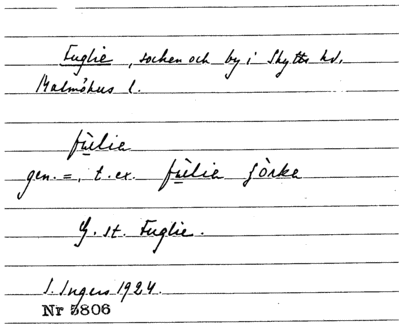 Fuglie, socken och by i Skytts hd,
Malmöhus l.
fùlia
gen. =, t. ex. fùlia ɟòrka
G. st. Fuglie.
I. Ingers 1924.
Nr 5806